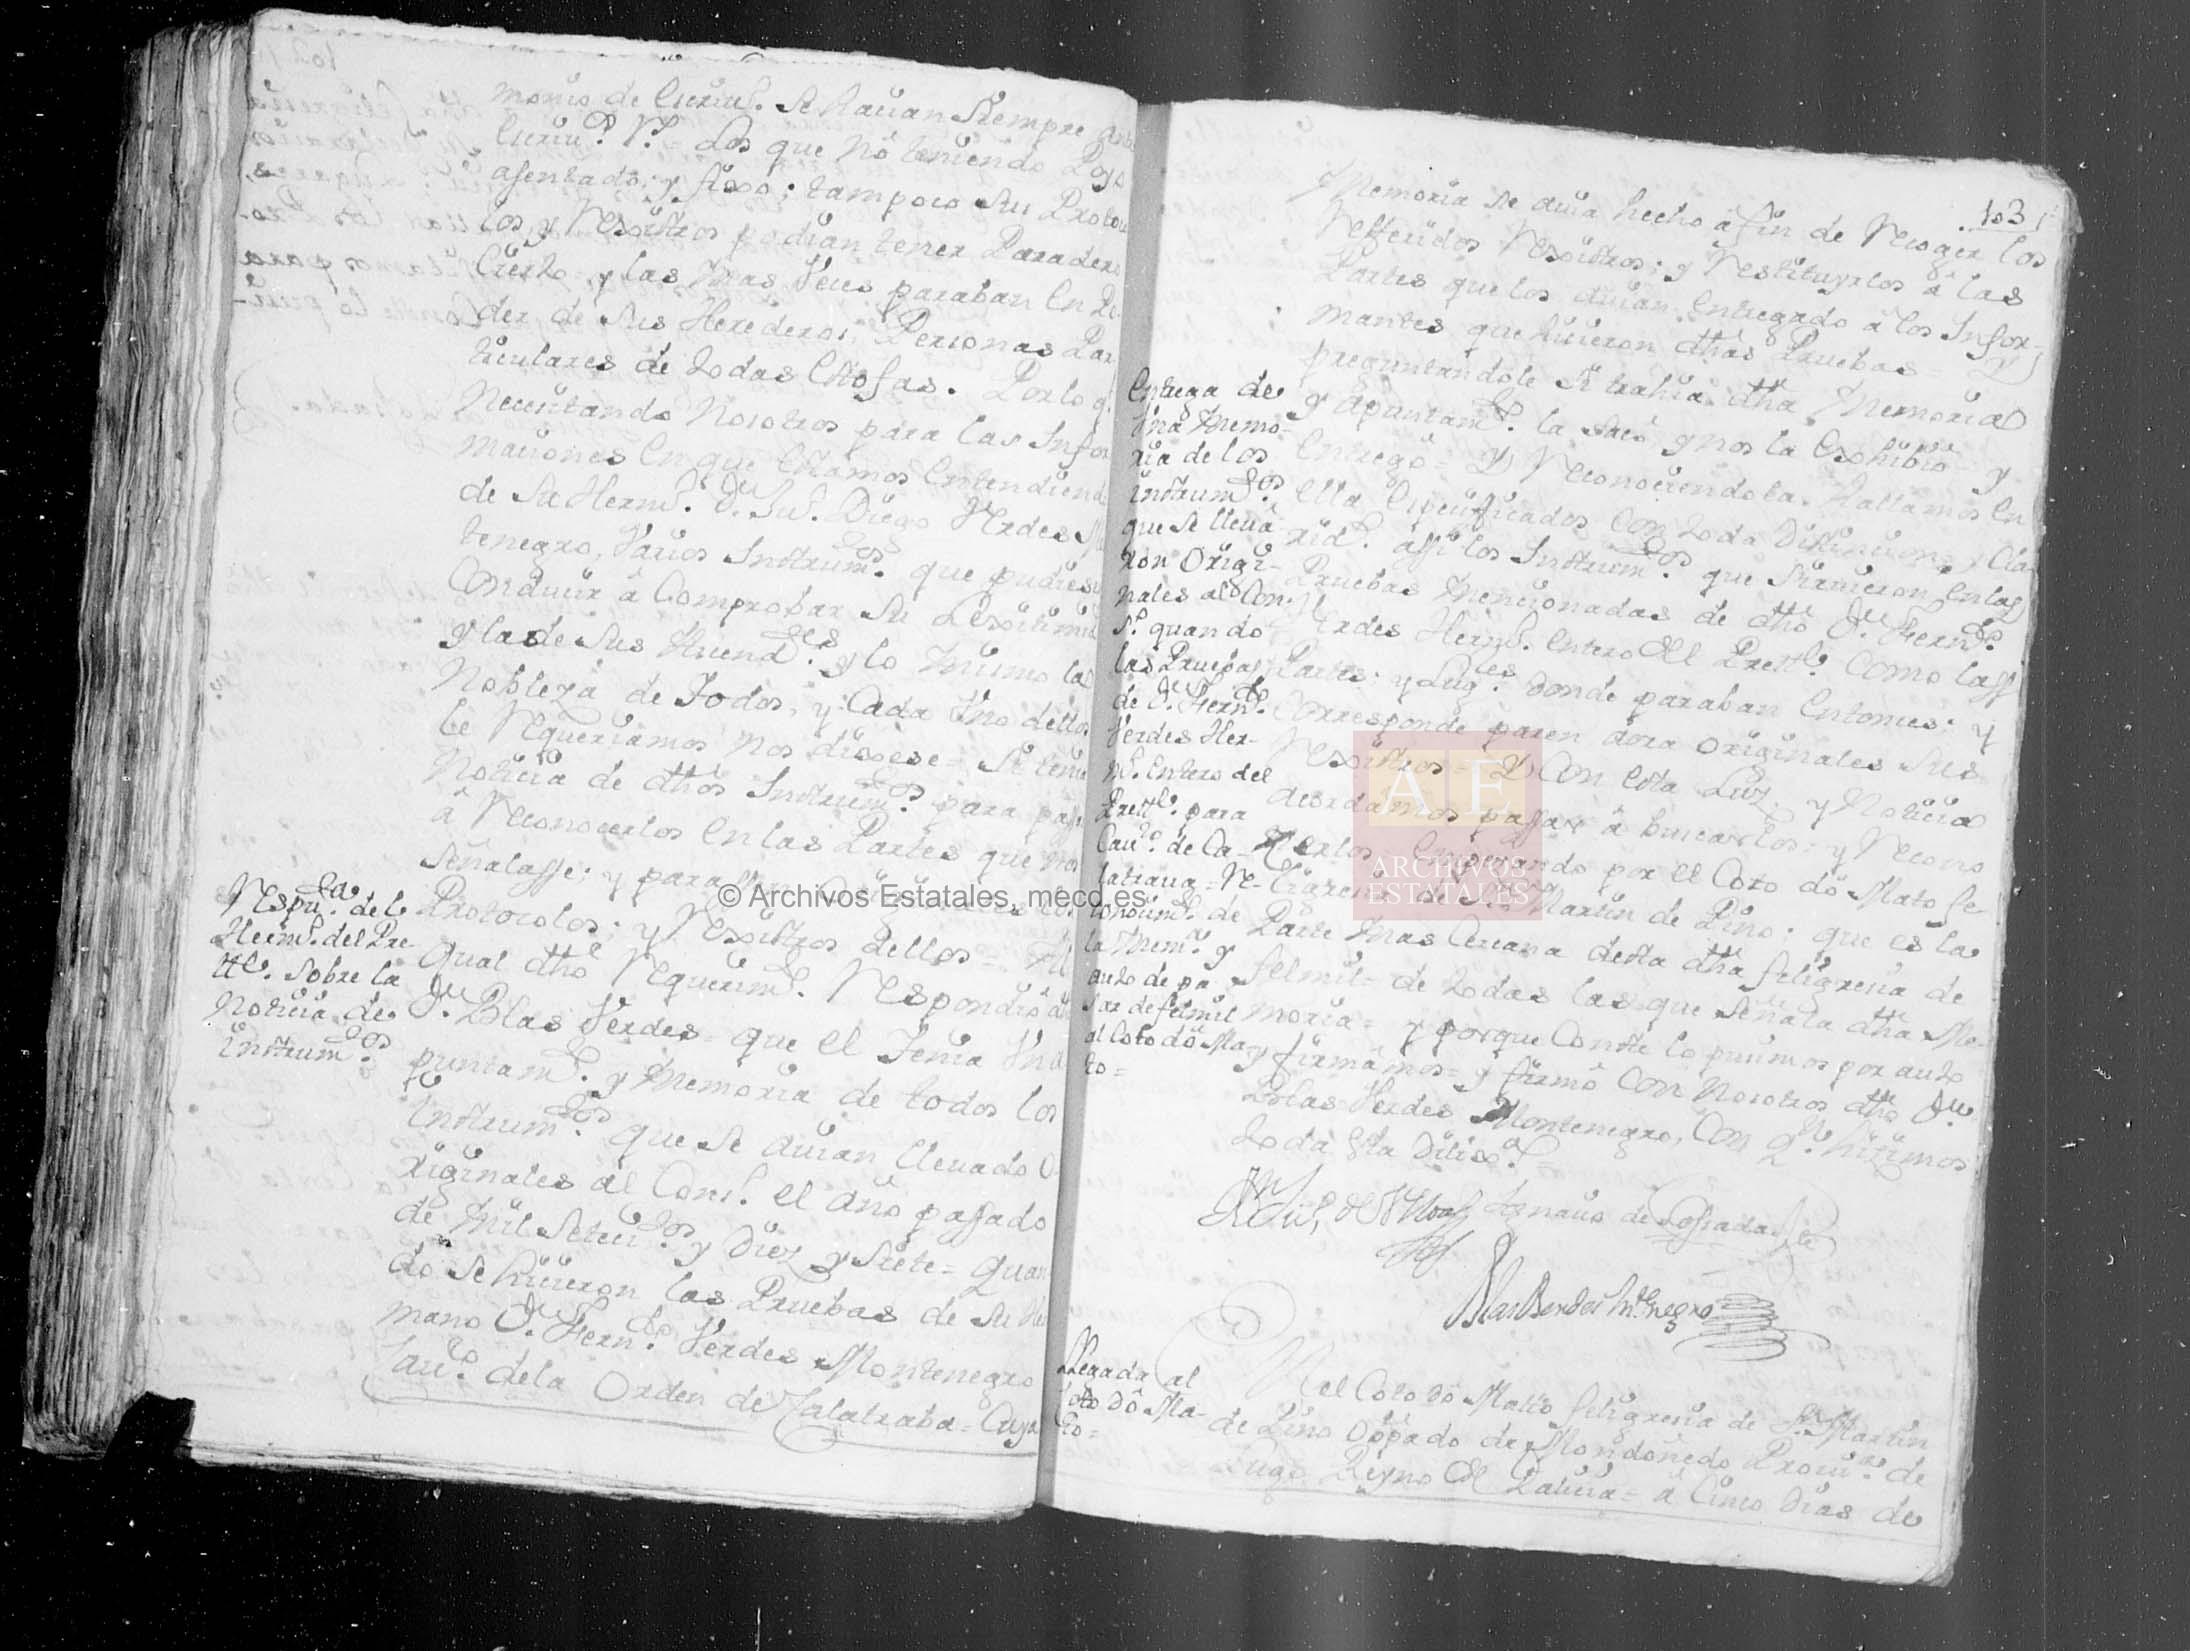 monio de se hauan Siempre
Los que nó teniendo Poyo
asentado; y fixo; tampoco sus Protoco
los y Rexistros podian tener Paradero
Cierto y las mas Veces paraban en Po-
der de sus Herederos; Personas Par
ticulares de todas Estofas. Por lo q.
Necesitando Nosotros para las Infor
maciones en que Estamos Entendiendo
de su Herm.º D.n Diego Verdes Mo
tenegro, Varios Instrum.tos que pudies
Conducir â Comprobar su Lexitimid
y la de sus y lo mismo la
Nobleza de Todos, y Cada Vno dellos
le Requeriamos nos dixese = Si tenia
Noticia de dthos Instrum.tos para passa
â Reconocerlos en las Partes que nos
Señalasse; y para
Respu.ta de el
Herm.º del Pre-
tte. sobre la
Noticia de
Instrum.tos
Protocolos; y Rexistros dellos = Al
qual dthó Requerim.to Respondió
D.n Blas Verdes = que el Tenia Vn
puntam.to y Memoria de todos los
Instrum.tos que se auian lleuado O-
riginales al Cons.º el año passado
de mil setec.os y Diez y Siete = quan
do se hicieron las Pruebas de su Her
mano D.n Fern.do Verdes Montenegro
Cau.ro de la Orden de Calatraba = Cuya
103
Memoria se auia hecho â fin de Recoger los
Refferidos Rexistros; y Restituyrlos â las
Partes que los auian Entregado â los Infor-
mantes que hicieron dthas Pruebas = Y
preguntandole si trahia dtha Memoria
y apuntam.to la sacó y nos la Exhibió y
Entregó = Y Reconociendola hallamos en
ella Especificados Con toda Distincion y Cla
rid.d assi los Instrum.tos que siruieron en las
Pruebas mencionadas de dthó D.n Fern.do
Verdes Herm.º entero del Prett.e Como las
Partes; y Lug.res donde paraban Entonces; y
Corresponde paren aora Originales sus
Rexistros = Y Con esta Luz y Noticia
acordamos passar â buscarlos; y Recono
cerlos Empezando por el Coto dó Mato fe
ligresia de S.n Martin de Pino; que es la
Parte mas Cercana desta dtha feligresia de
felmil = de todas las que Señala dtha Me-
moria = y porque Conste lo pusimos por auto
y firmamos = y firmó Con Nosotros dthó D.n
Blas Verdes Montenegro, Con q.n hicimos
toda Esta Dilix.a
Entrega de
Vna Memo-
ria de los
Instrum.tos
que se lleua-
ron Origi-
nales al Con-
s.º quando
las Pruebas
de D.n Fern.do
Verdes Her-
m.º Entero del
Prett.e para
Cau.ro de Ca-
latraua = Re-
conocim.to de
la Mem.a y
auto de pa
sar de felmil
al Coto dó Ma-
to =
Ignacio de Losada
Blas Berdes Mtenegro
Llegada al
Coto Dó Ma-
to =
N el Coto dó Mato feligresia de S.n Martin
de Pino Obpado de Mondoñedo Prouin.a de
Lugo Reyno de Galicia = â Cinco dias de
© Archivos Estatales, mecd.es
AE
ARCHIVOS
ESTATALES